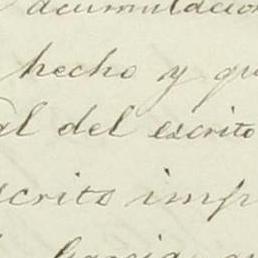 acumulacion
hecho y qu
al del escrito
scrito imp
Garcia